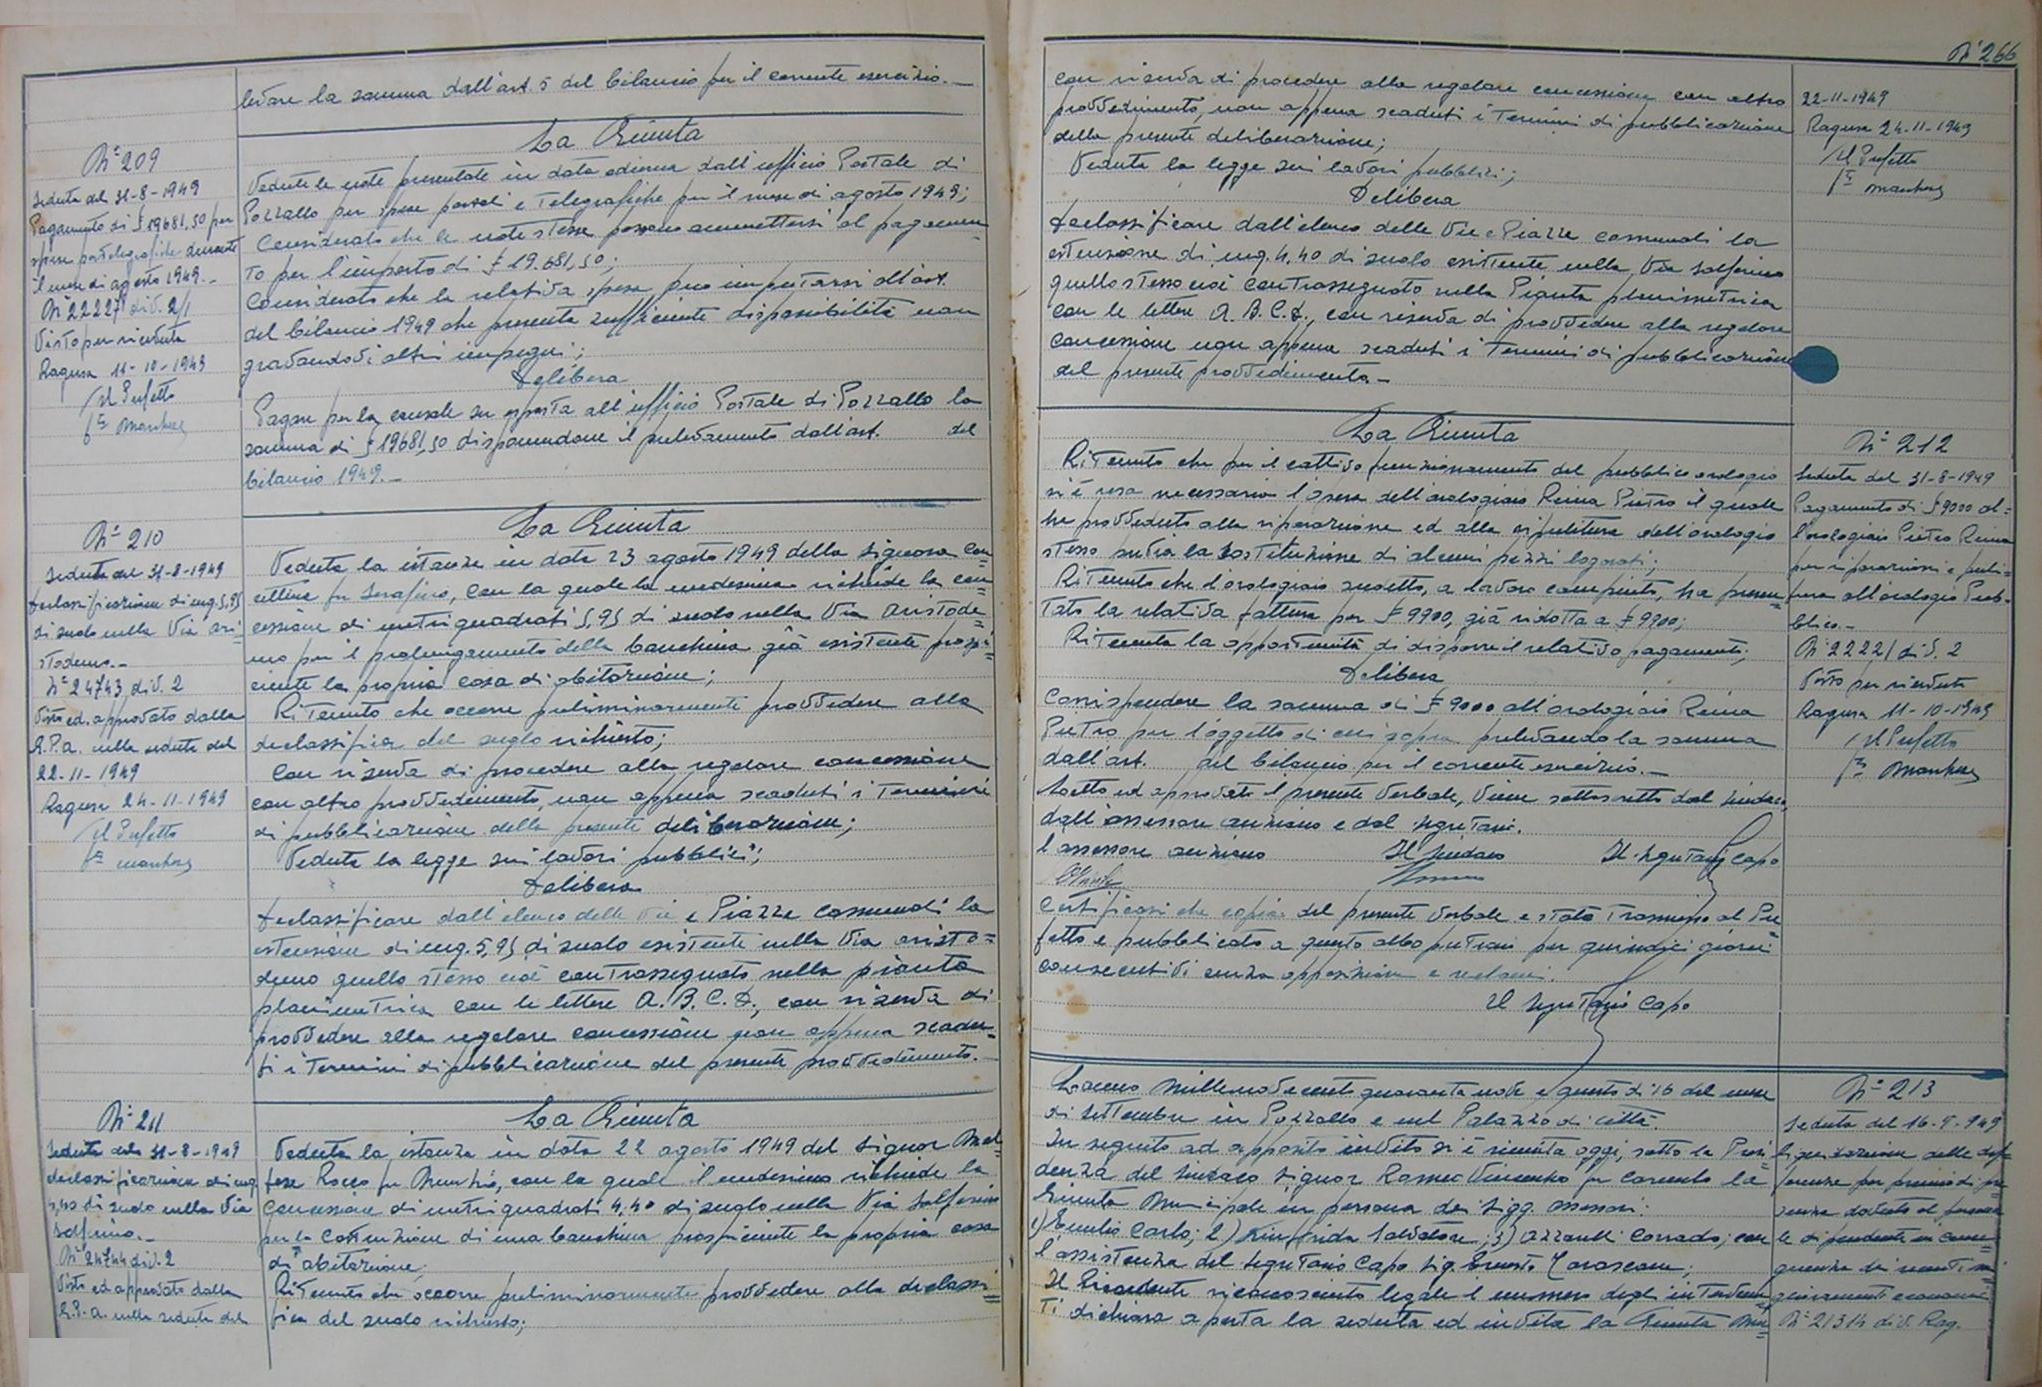 levare la somma dall'art. 5 del bilancio per il corrente esercizio.—
N° 209
Seduta del 31-8-1949
Pagamento di £ 19681,50 per
spese postelegrafiche durante
il mese di agosto 1949.-
N° 22227 div. 2/1
Visto per ricevuta
Ragusa 11-10-1949
Il Prefetto
La Giunta
Vedute le note presentate in data odierna dall'ufficio Postale di
Pozzallo per spese postali e Telegrafiche per il mese di agosto 1949;
Considerato che le note stesse possono ammettersi al pagamen-
to per l'importo di £ 19.681,50;
Considerato che la relativa spesa può imputarsi all'art.
del bilancio 1949 che presenta sufficiente disponibilità non
gravandovi altri impegni;
Delibera
Pagare per la causale su esposta all'ufficio Postale di Pozzallo la
somma di £ 19681,50 disponendone il prelevamento dall'art. del
bilancio 1949.-
N° 210
Seduta del 31-8-1949
Declassificazione di mq. 5,95
di suolo nella Via Ari-
stodemo.-
N° 24743 div. 2
Visto ed approvato dalla
G.P.A. nella seduta del
22-11-1949
Ragusa 24-11-1949
Il Prefetto
La Giunta
Veduta la istanza in data 23 agosto 1949 della Signora
fu Serafino, con la quale la medesima richiede la con-
cessione di metri quadrati 5,95 di suolo nella Via Aristode-
mo per il prolungamento della banchina già esistente prospi-
ciente la propria casa di abitazione;
Ritenuto che occorre preliminarmente provvedere alla
declassifica del suolo richiesto;
Con riserva di procedere alla regolare concessione
con altro provvedimento, non appena scaduti i Termini
di pubblicazione della presente deliberazione;
Veduta la legge sui lavori pubblici;
Delibera
Declassificare dall'elenco delle Vie e Piazze comunali la
estensione di mq. 5,95 di suolo esistente nella Via Aristo-
demo quello stesso cioè contrassegnato nella pianta
planimetrica con le lettere A. B. C. D., con riserva di
provvedere alla regolare concessione non appena scadu-
ti i Termini di pubblicazione del presente provvedimento.-
N° 211
Seduta del 31-8-1949
declassificazione di mq
4,40 di suolo nella Via
Solferino.-
N° 24744 div. 2
Visto ed approvato dalla
G.P.A. nella seduta del
La Giunta
Veduta la istanza in data 22 agosto 1949 del Signor
Rocco fu, con la quale il medesimo richiede la
Concessione di metri quadrati 4,40 di suolo nella Via Solferino
per la costruzione di una banchina prospiciente la propria casa
di abitazione;
Ritenuto che occorre preliminarmente provvedere alla declassi-
fica del suolo richiesto;
N° 266
con riserva di procedere alla regolare concessione con altro
provvedimento, non appena scaduti i Termini di pubblicazione
della presente deliberazione;
Veduta la legge sui lavori pubblici;
Delibera
Declassificare dall'elenco delle Vie e Piazze comunali la
estensione di mq. 4,40 di suolo esistente nella Via Solferino
quello stesso cioè contrassegnato nella Pianta planimetrica
con le lettere A. B. C. D., con riserva di provvedere alla regolare
concessione non appena scaduti i Termini di pubblicazione
del presente provvedimento.-
22-11-1949
Ragusa 24-11-1949
Il Prefetto
La Giunta
Ritenuto che per il cattivo funzionamento del pubblico orologio
si è resa necessaria l'opera dell'orologiaio Pietro il quale
ha provveduto alla riparazione ed alla ripulitura dell'orologio
stesso la sostituzione di alcuni pezzi logorati;
Ritenuto che l'orologiaio suddetto, a lavoro compiuto, ha presen-
tato la relativa fattura per £ 9900, già ridotta a £ 9000;
Ritenuta la opportunità di disporre il relativo pagamento;
Delibera
Corrispondere la somma di £ 9000 all'orologiaio
Pietro per l'oggetto di cui sopra prelevando la somma
dall'art. del bilancio per il corrente esercizio.—
Letto ed approvato il presente Verbale, viene sottoscritto dal Sindaco,
dall'assessore anziano e dal Segretario.
l'assessore anziano Il Sindaco Il Segretario Capo
Certificasi che copia del presente verbale è stata Trasmessa al Pre-
fetto e pubblicata a questo albo pretorio per quindici giorni
consecutivi senza opposizioni e reclami.
Il Segretario Capo
N° 212
Seduta del 31-8-1949
Pagamento di £ 9000 al-
l'orologiaio Pietro
per riparazioni e puli-
tura all'orologio Pub-
blico.-
N° 22221 div. 2
Visto per ricevuta
Ragusa 11-10-1949
Il Prefetto
L'anno millenovecentoquarantanove e questo dì 16 del mese
di Settembre in Pozzallo e nel Palazzo di città.
In seguito ad apposito invito si è riunita oggi, sotto la Presi-
denza del Sindaco Signor Vincenzo fu Carmelo la
Giunta Municipale in persona dei Sigg. Assessori:
1) Carlo; 2) Salvatore; 3) Corrado; con
l'assistenza del Segretario Capo Sig. Ernesto
Il Presidente riconosciuto legale il numero degli intervenu-
ti dichiara aperta la seduta ed invita la Giunta Mu-
N° 213
Seduta del 16-9-949
Liquidazione delle dif-
ferenze per premio di pre-
senza dovuto al persona-
le dipendente in conse-
guenza dei recenti mi-
glioramenti economici
N° 21314 div. Rag.